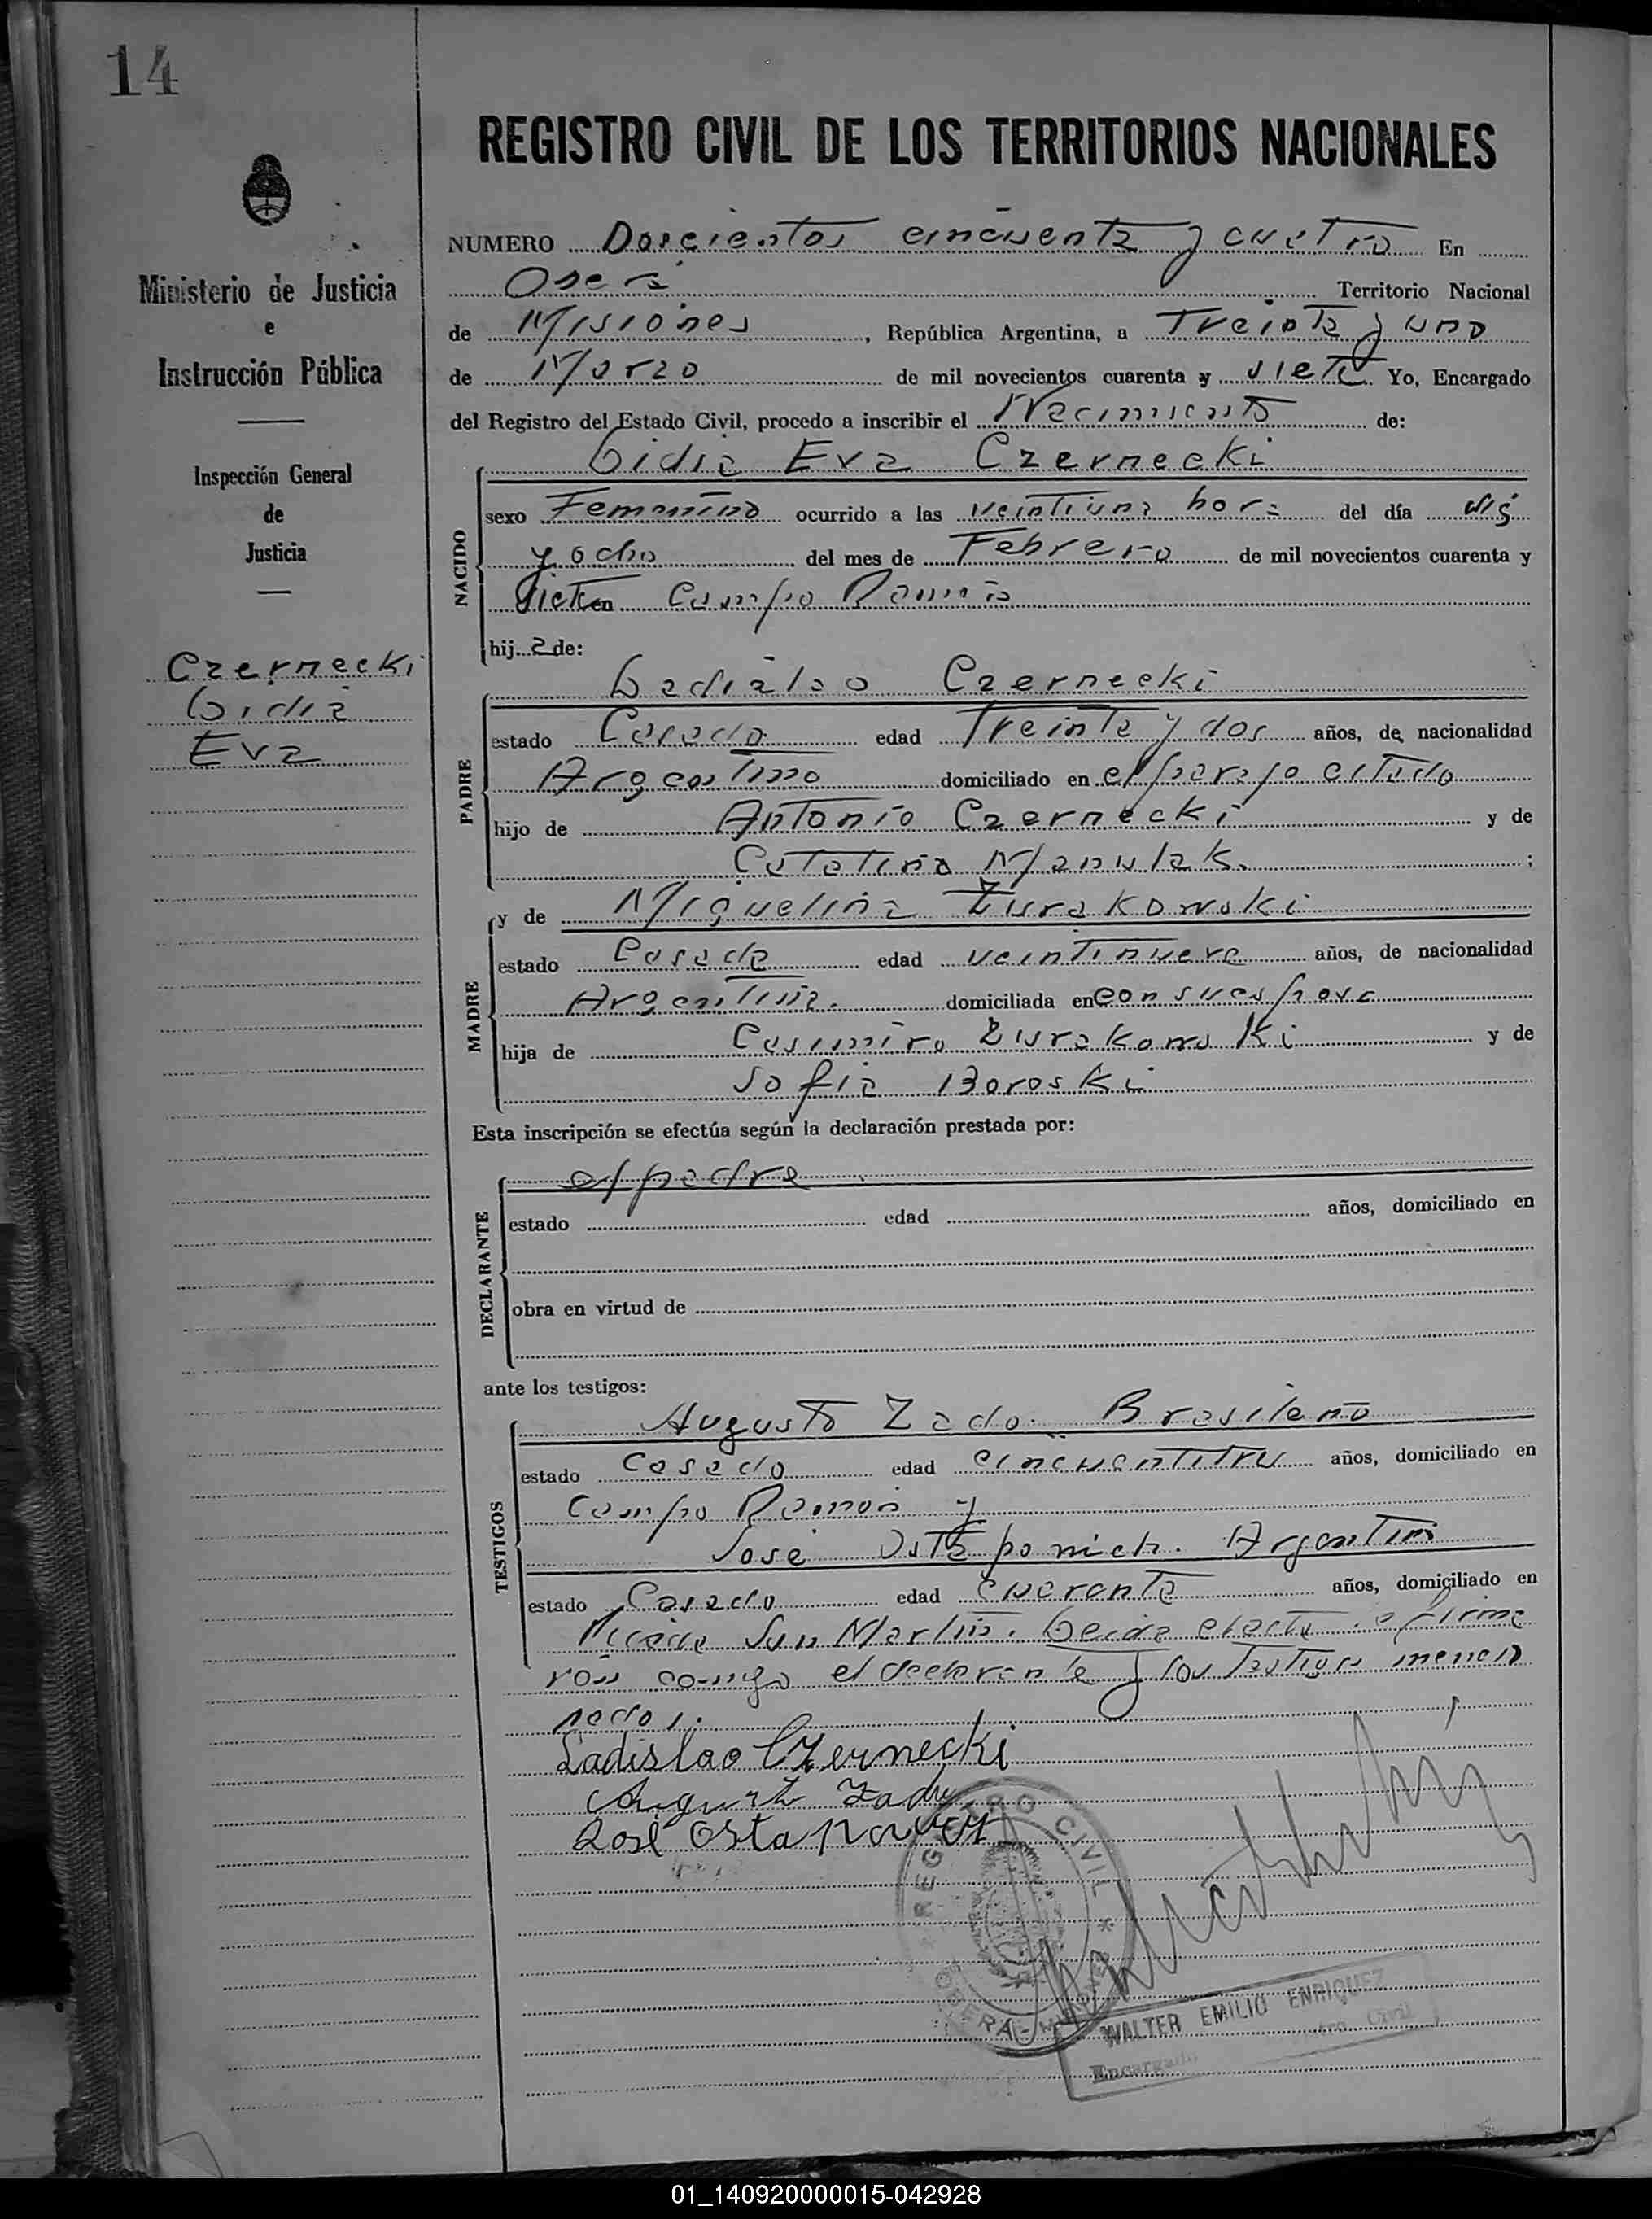 14
REGISTRO CIVIL DE LOS TERRITORIOS NACIONALES
Ministerio de Justicia
e
Instrucción Pública
Inspección General
de
Justicia
Czernecki
Lidia
Eva
NUMERO Doscientos cincuenta y cuatro En
Oberá Territorio Nacional
de Misiones, República Argentina, a Treinta y uno
de Marzo de mil novecientos cuarenta y siete Yo, Encargado
del Registro del Estado Civil, procedo a inscribir el Nacimiento de:
NACIDO
Lidia Eva Czernecki
sexo Femenino ocurrido a las veintiuna hora del día
y ocho del mes de Febrero de mil novecientos cuarenta y
siete en Campo Ramón
hij a de:
PADRE
Ladislao Czernecki
estado Casado edad Treinta y dos años, de nacionalidad
Argentino domiciliado en el paraje citado
hijo de Antonio Czernecki y de
Catalina Manulak ;
MADRE
y de Miguelina Zurakowski
estado Casada edad veintinueve años, de nacionalidad
Argentina domiciliada en con su esposo
hija de Casimiro Zurakowski y de
Sofia Boroski
Esta inscripción se efectúa según la declaración prestada por:
DECLARANTE
el padre
estado edad años, domiciliado en
obra en virtud de
ante los testigos:
TESTIGOS
Augusto Zado. Brasileño
estado Casado edad cincuentitres años, domiciliado en
Campo Ramón y
José Ostapowich. Argentino
estado Casado edad cuarenta años, domiciliado en
Picada San Martín. Leida el acta firma
ron conmigo el declarante y los testigos mencio
nados.
Ladislao Czernecki
José
REGISTRO CIVIL
OBERA - MISIONES
WALTER EMILIO ENRIQUEZ
Encargado Civil
01_140920000015-042928